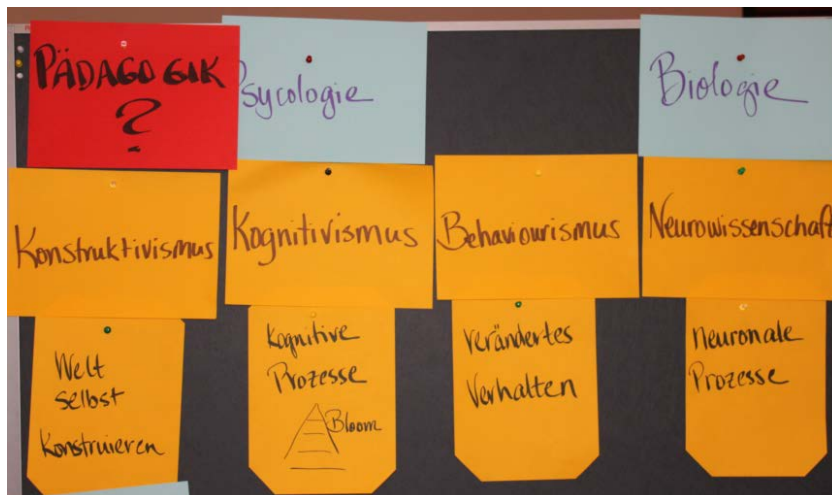 PÄDAGOGIK
?
Psycologie
Biologie
Konstruktivismus
Kognitivismus
Behaviourismus
Neurowissenschaft
Welt
selbst
Konstruieren
Kognitive
Prozesse
Bloom
Verändertes
Verhalten
Neuronale
Prozesse